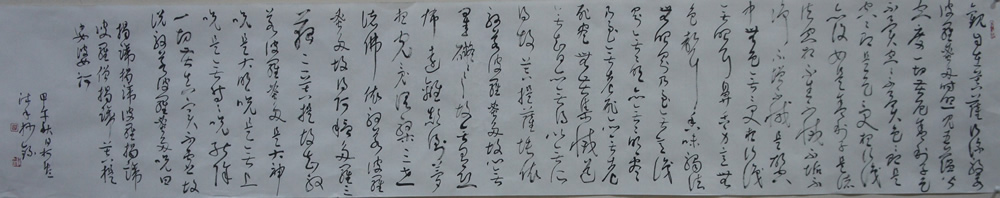 觀自在菩薩行深般若
波羅蜜多時照見五蘊皆
空度一切苦厄舍利子色
不異空空不異色色即是
空空即是色受想行識
亦復如是舍利子是諸
法空相不生不滅不垢不
淨不增不減是故空
中無色無受想行識
無眼耳鼻舌身意無
色聲香味觸法
無眼界乃至無意識
界無無明亦無無明盡
乃至無老死亦無老
死盡無苦集滅道
無智亦無得以無所
得故菩提薩埵依
般若波羅蜜多故心無
罣礙無罣礙故無有恐
怖遠離顛倒夢
想究竟涅槃三世
諸佛依般若波羅
蜜多故得阿耨多羅三
藐三菩提故知般
若波羅蜜多是大神
咒是大明咒是無上
咒是無等等咒能除
一切苦真實不虛故
說般若波羅蜜多咒曰
揭諦揭諦波羅揭諦
波羅僧揭諦菩提
娑婆訶
甲午秋日於